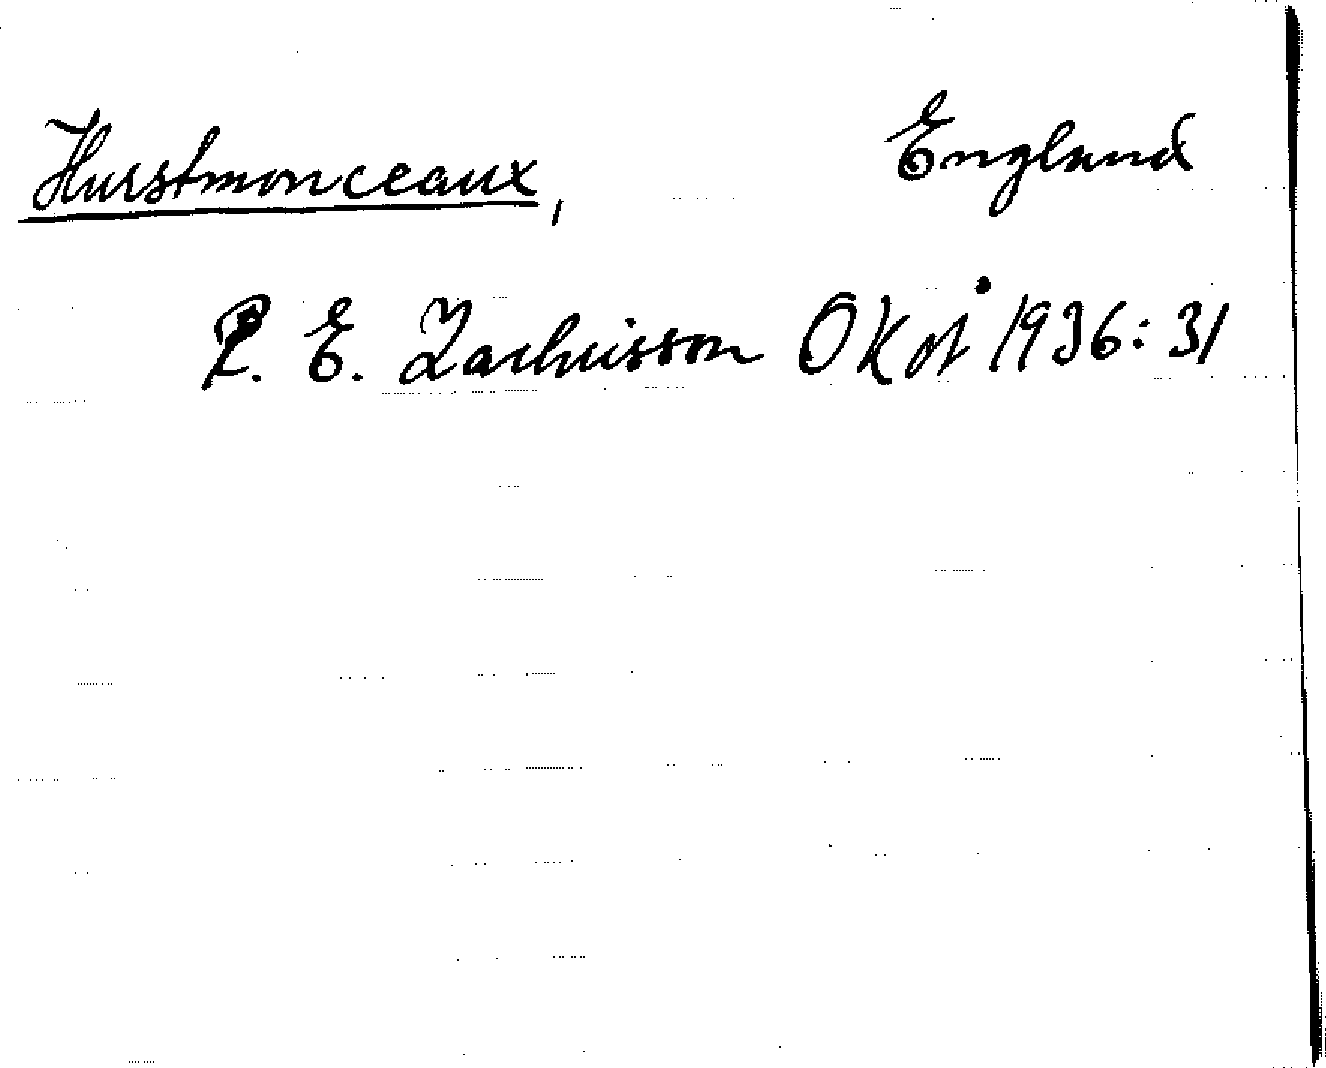 Hurstmonceaux, England
R. E. Zachrisson OKoÅ 1936: 31